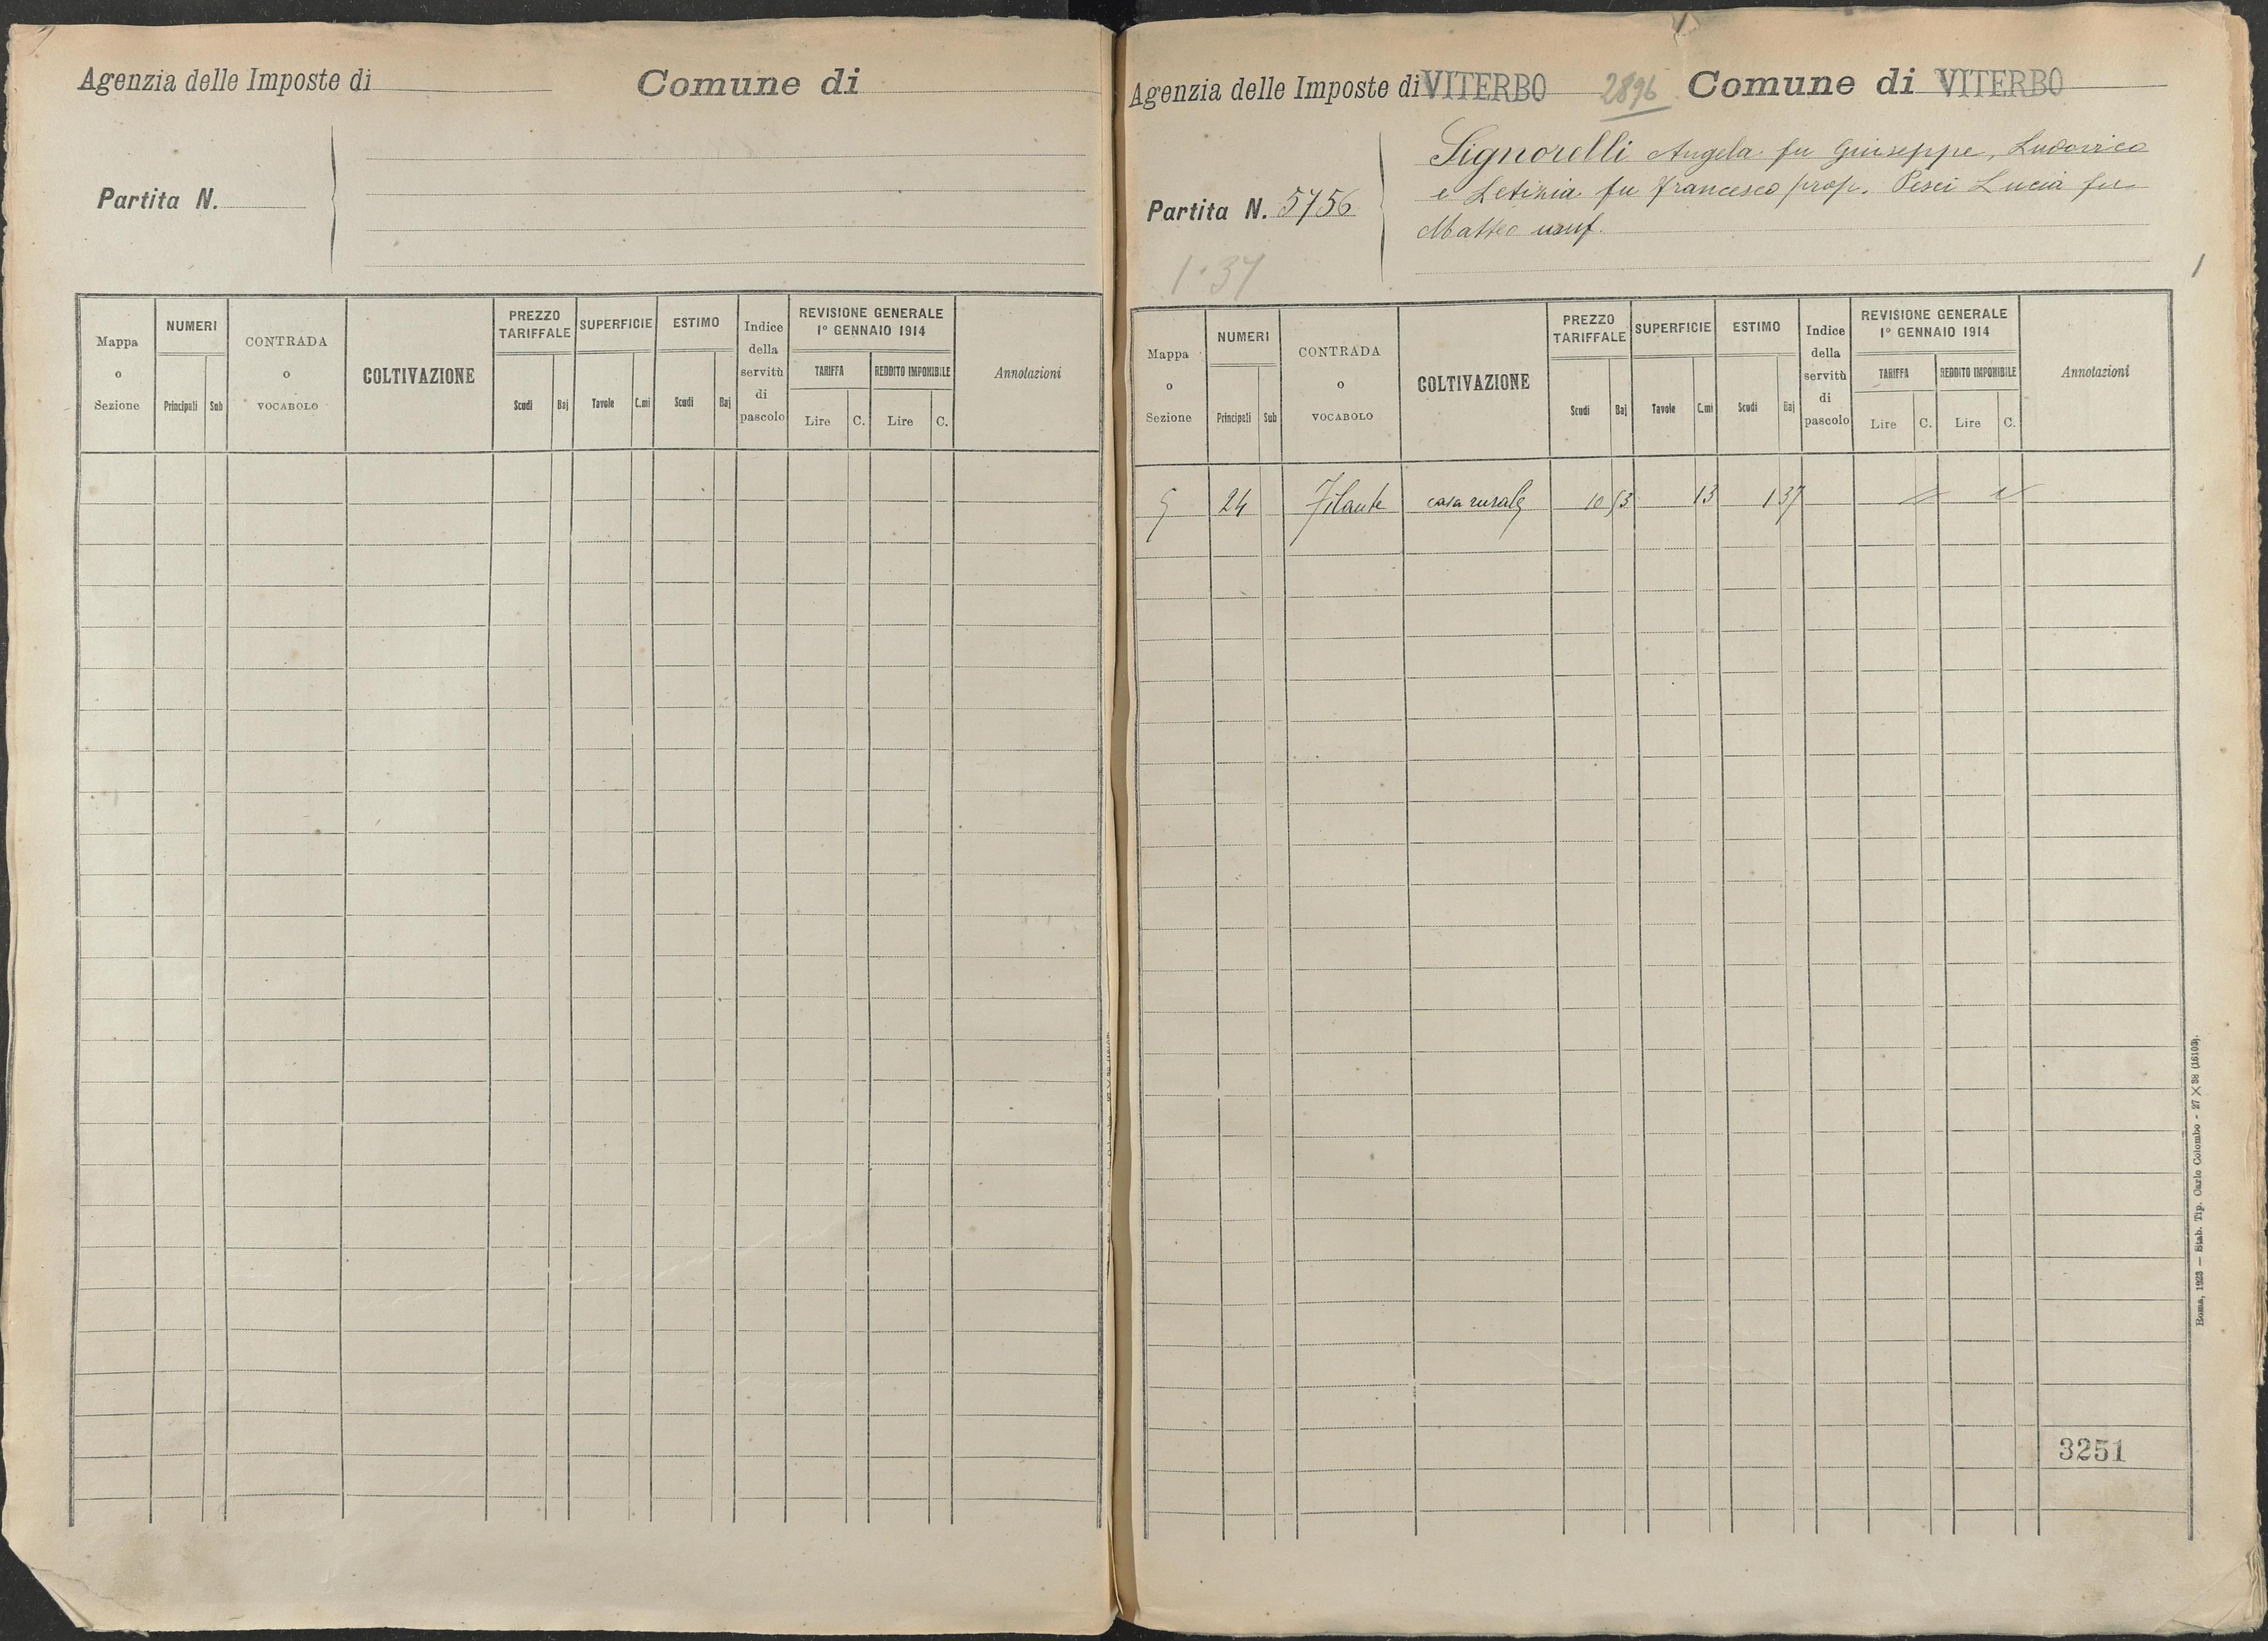 Agenzia delle Imposte di
Comune di
Partita N.
Mappa o Sezione
NUMERI
Principali
Sub
CONTRADA o VOCABOLO
COLTIVAZIONE
PREZZO TARIFFALE
Scudi
Baj
SUPERFICIE
Tavole
C.mi
ESTIMO
Scudi
Baj
Indice della servitù di pascolo
REVISIONE GENERALE
1º GENNAIO 1914
TARIFFA
Lire
C.
REDDITO IMPONIBILE
Lire
C.
Annotazioni
Agenzia delle Imposte di VITERBO 2896 Comune di VITERBO
Signorelli Angela fu Giuseppe, Ludovico
e Letizia fu Francesco prop. Pesci Lucia fu
Matteo usuf.
Partita N. 5756
1.37
Mappa o Sezione
NUMERI
Principali
Sub
CONTRADA o VOCABOLO
COLTIVAZIONE
PREZZO TARIFFALE
Scudi
Baj
SUPERFICIE
Tavole
C.mi
ESTIMO
Scudi
Baj
Indice della servitù di pascolo
REVISIONE GENERALE
1º GENNAIO 1914
TARIFFA
Lire
C.
REDDITO IMPONIBILE
Lire
C.
Annotazioni
24 Filante casa rurale 10 53 13 1 37
3251
Roma, 1923 — Stab. Tip. Carlo Colombo - 27 X 38 (16103).